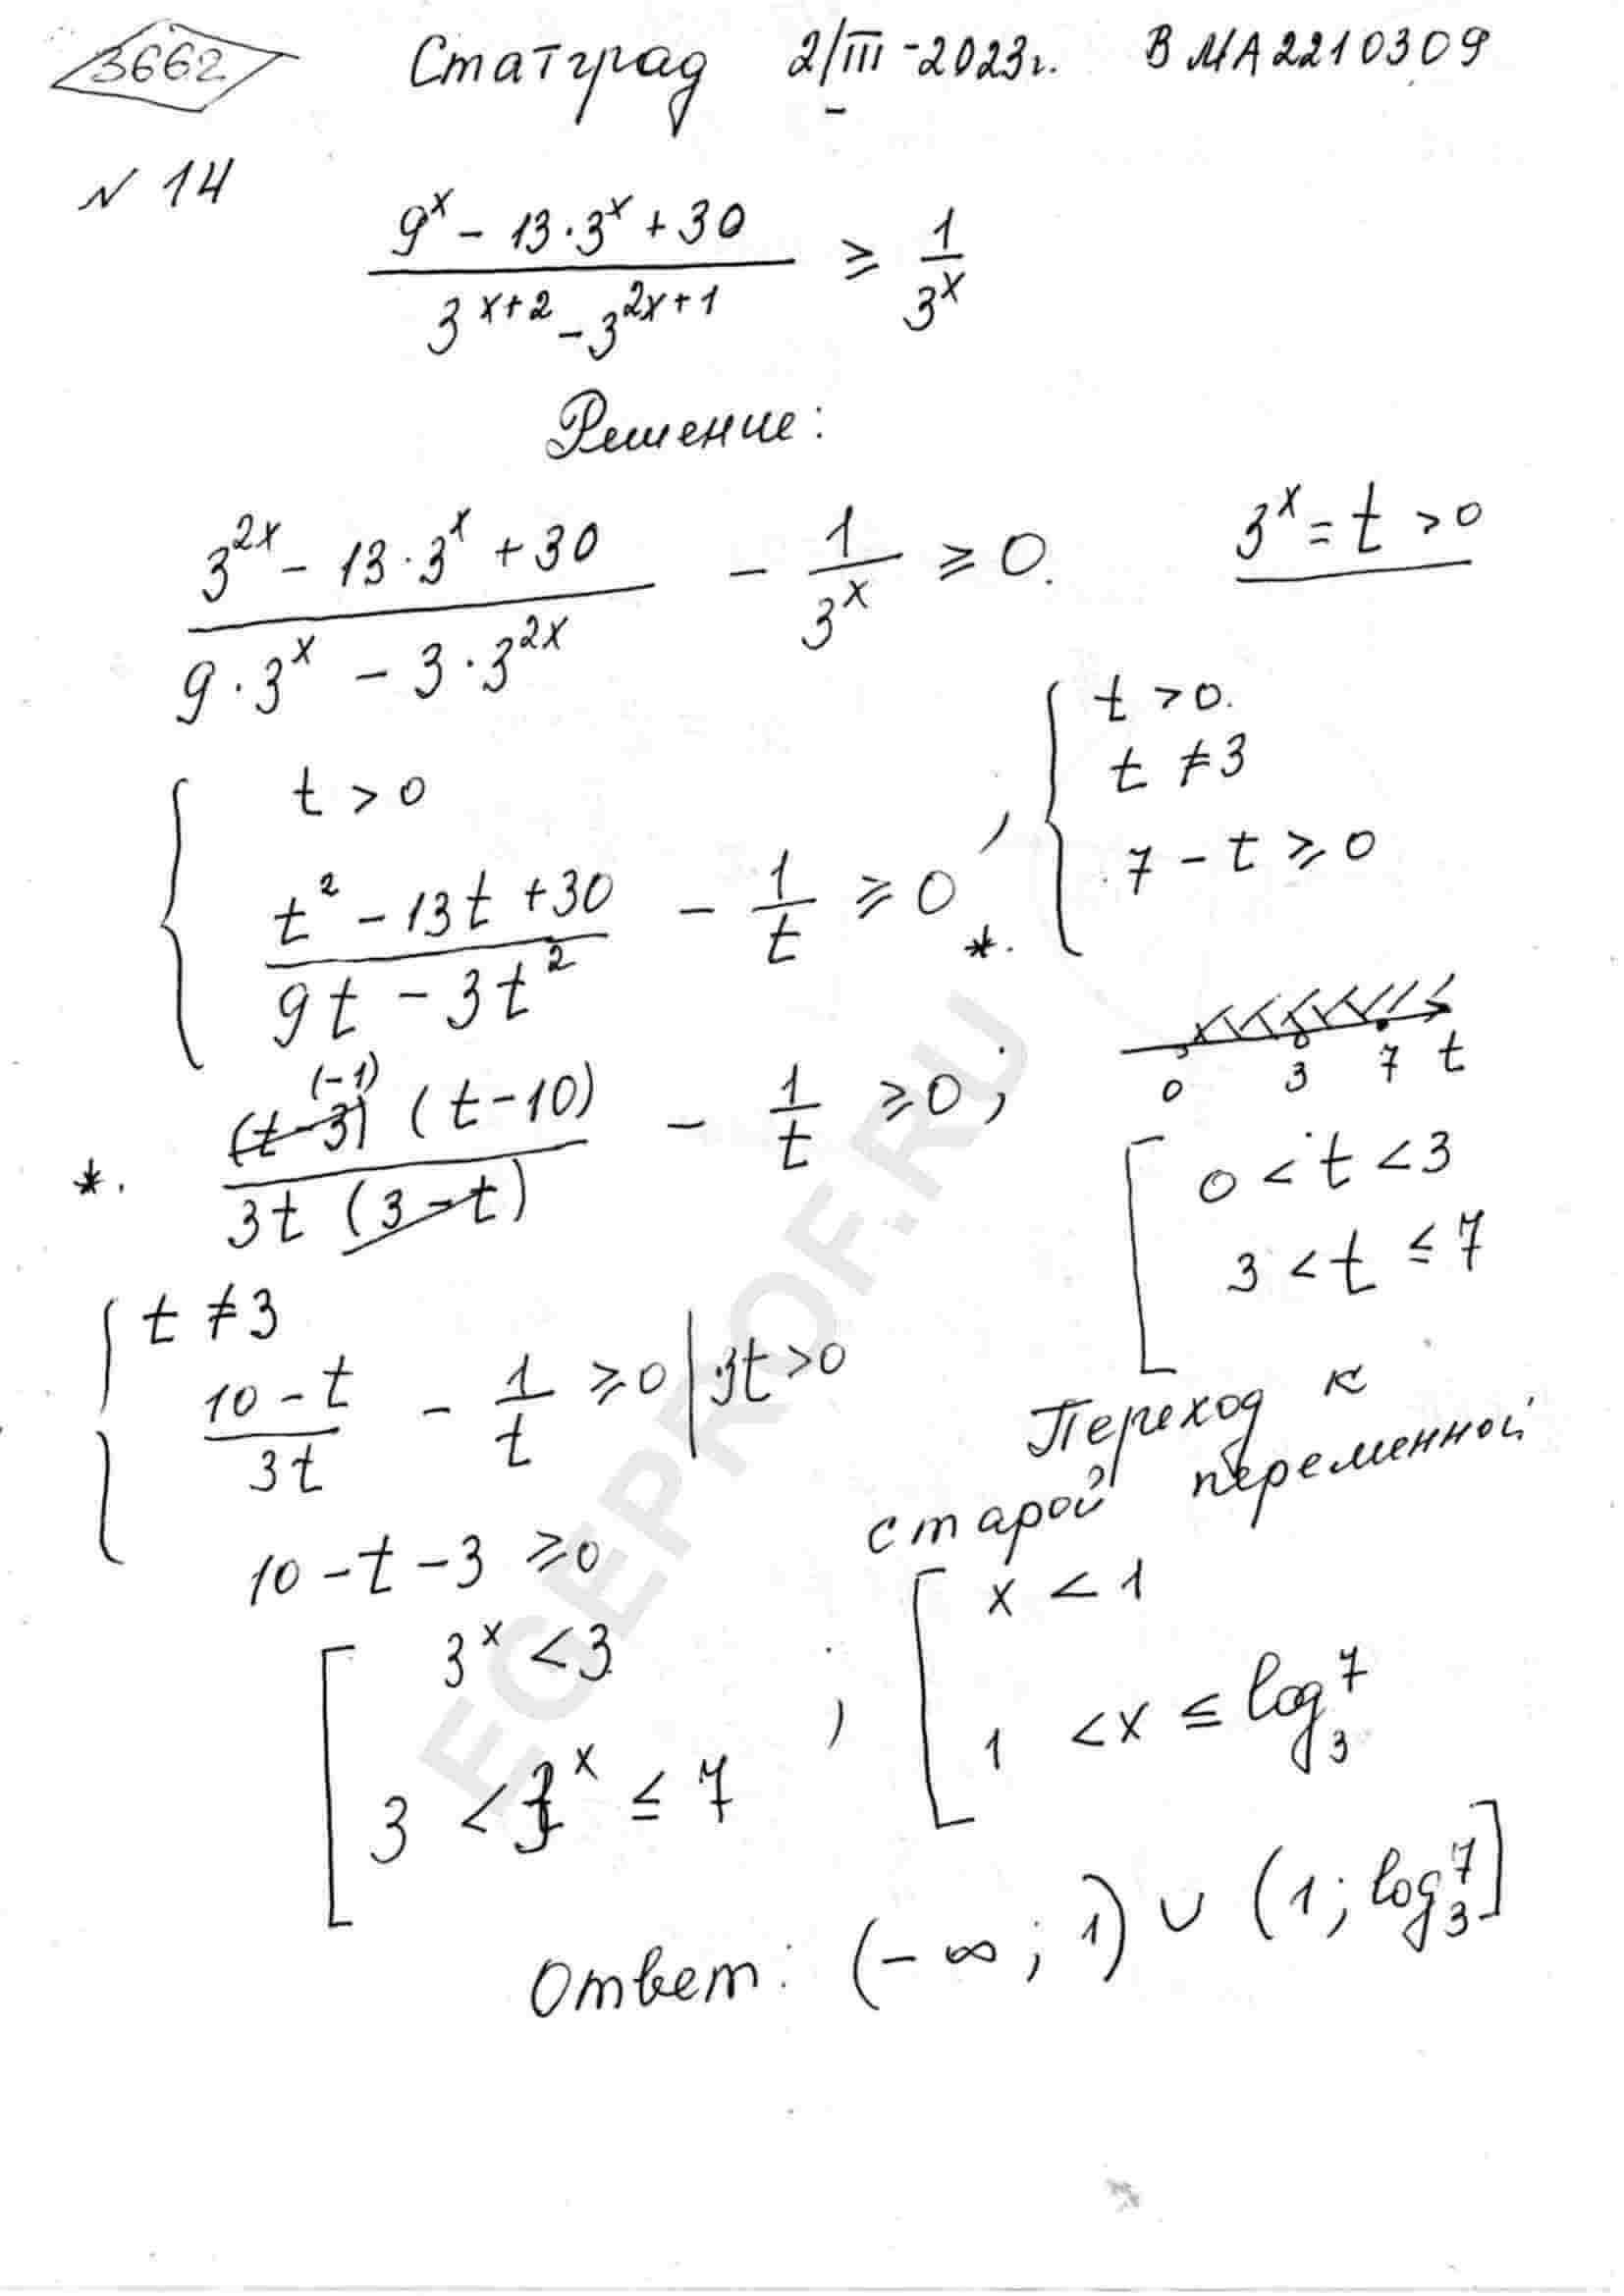 3662 Статград 2/III-2023г. В МА2210309
N 14
(9^x - 13·3^x + 30)/(3^(x+2) - 3^(2x+1)) ≥ 1/3^x
Решение:
(3^(2x) - 13·3^x + 30)/(9·3^x - 3·3^(2x)) - 1/3^x ≥ 0. 3^x = t > 0
{ t > 0
(t² - 13t + 30)/(9t - 3t²) - 1/t ≥ 0 *. ,
*. ((t-3) (-1) (t-10))/(3t (3-t)) - 1/t ≥ 0 ;
{ t ≠ 3
(10 - t)/(3t) - 1/t ≥ 0 | 3t > 0
10 - t - 3 ≥ 0
{ t > 0.
t ≠ 3
7 - t ≥ 0
0 3 7 t
[ 0 < t < 3
3 < t ≤ 7
Переход к
старой переменной
[ 3^x < 3 ;
3 < 3^x ≤ 7
[ x < 1
1 < x ≤ log_3 7
Ответ: (-∞; 1) ∪ (1; log_3 7]
EGEPROF.RU